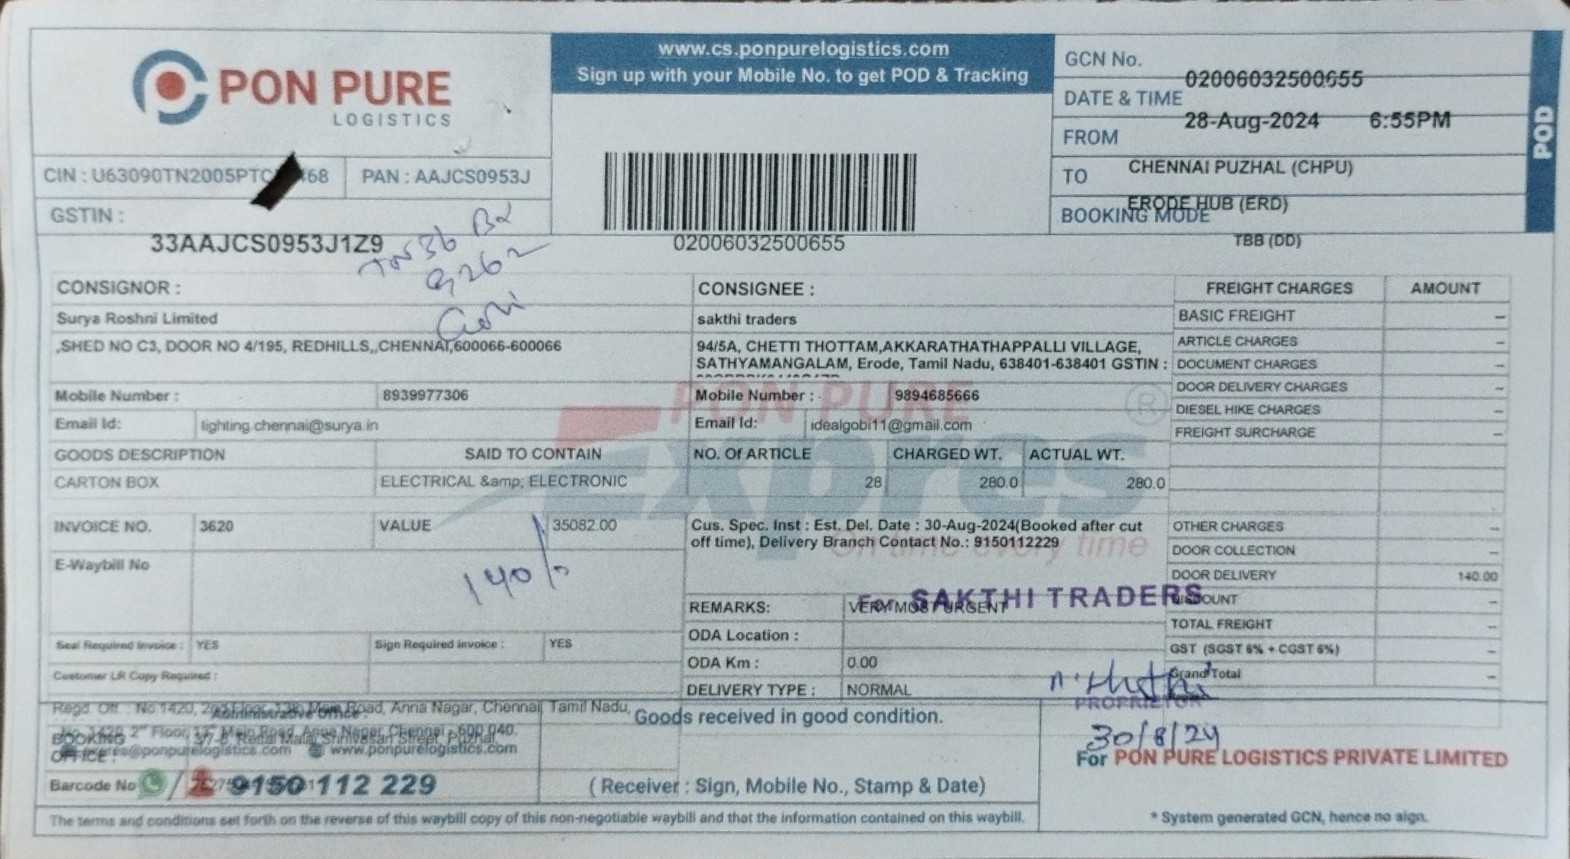 PON PURE
LOGISTICS
www.cs.ponpurelogistics.com
Sign up with your Mobile No. to get POD & Tracking
GCN No.
02006032500655
DATE & TIME
28-Aug-2024 6:55PM
FROM
CHENNAI PUZHAL (CHPU)
TO
ERODE HUB (ERD)
BOOKING MODE
TBB (DD)
POD
CIN : U63090TN2005PTC 468
PAN : AAJCS0953J
GSTIN :
33AAJCS0953J1Z9
02006032500655
TN 36
9262
Gobi
CONSIGNOR :
Surya Roshni Limited
,SHED NO C3, DOOR NO 4/195, REDHILLS,,CHENNAI,600066-600066
Mobile Number : 8939977306
Email Id: lighting.chennai@surya.in
CONSIGNEE :
sakthi traders
94/5A, CHETTI THOTTAM,AKKARATHATHAPPALLI VILLAGE,
SATHYAMANGALAM, Erode, Tamil Nadu, 638401-638401 GSTIN :
Mobile Number : 9894685666
Email Id: idealgobi11@gmail.com
PON PURE ®
Expres
On time every time
GOODS DESCRIPTION SAID TO CONTAIN
CARTON BOX ELECTRICAL &amp; ELECTRONIC
NO. Of ARTICLE CHARGED WT. ACTUAL WT.
28 280.0 280.0
INVOICE NO. 3620 VALUE 35082.00
E-Waybill No
140/-
Seal Required Invoice : YES Sign Required Invoice : YES
Customer LR Copy Required :
Cus. Spec. Inst : Est. Del. Date : 30-Aug-2024(Booked after cut
off time), Delivery Branch Contact No.: 9150112229
REMARKS: VERY MOST URGENT
ODA Location :
ODA Km : 0.00
DELIVERY TYPE : NORMAL
FREIGHT CHARGES AMOUNT
BASIC FREIGHT --
ARTICLE CHARGES --
DOCUMENT CHARGES --
DOOR DELIVERY CHARGES --
DIESEL HIKE CHARGES --
FREIGHT SURCHARGE --
OTHER CHARGES --
DOOR COLLECTION --
DOOR DELIVERY 140.00
DISCOUNT --
TOTAL FREIGHT --
GST (SGST 6% + CGST 6%) --
Grand Total --
For SAKTHI TRADERS
PROPRIETOR
30/8/24
Regd. Off : No 1420, 2nd Floor, 13th Main Road, Anna Nagar, Chennai, Tamil Nadu,
Administrative Office :
BOOKING
OFFICE :
www.ponpurelogistics.com
Barcode No
9150 112 229
Goods received in good condition.
( Receiver : Sign, Mobile No., Stamp & Date)
For PON PURE LOGISTICS PRIVATE LIMITED
The terms and conditions set forth on the reverse of this waybill copy of this non-negotiable waybill and that the information contained on this waybill.
* System generated GCN, hence no sign.